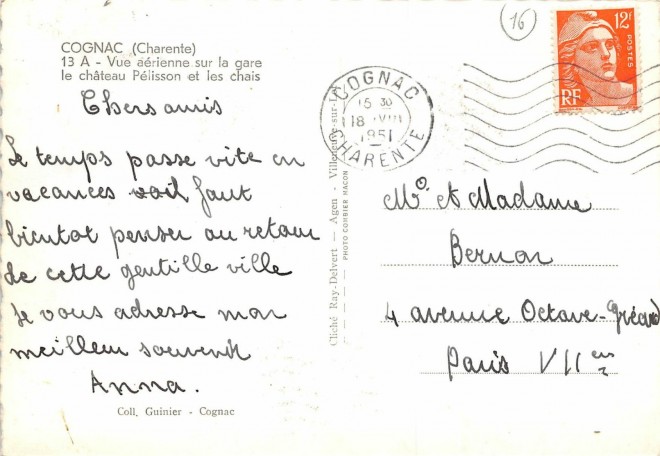 COGNAC (Charente)
13 A - Vue aérienne sur la gare
le château Pélisson et les chais
Chers amis
Le temps passe vite en
vacances voil faut
bientot penser au retour
de cette gentille ville
Je vous adresse mon
meilleur souvenir
Anna.
Coll. Guinier - Cognac
Cliché Ray-Delvert - Agen - Villeneuve-sur-L
PHOTO COMBIER MACON
16
COGNAC
15 30
18 VIII
1951
CHARENTE
12F
POSTES
RF
Mr et Madame
Bernon
4 avenue Octave-Gréard
Paris VII em